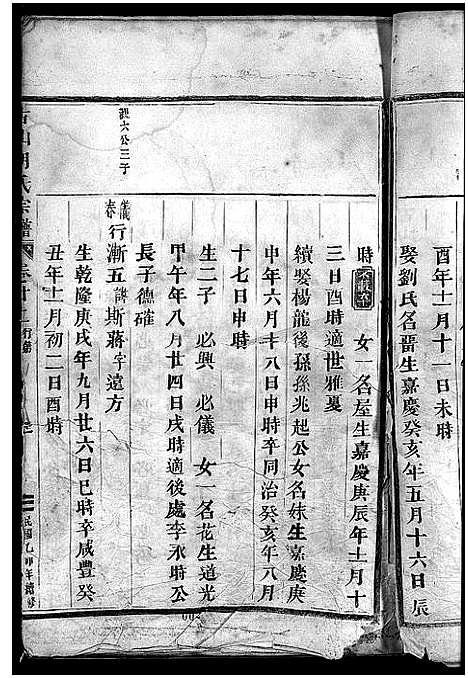 酉年十一月十一日未時
娶劉氏名晋生嘉慶癸亥年五月十六日辰
時 女一名屋生嘉慶庚辰年十一月十
三日酉時適世雅夏
續娶楊龍後孫孫兆起公女名妹生嘉慶庚
申年六月十八日申時卒同治癸亥年八月
十七日申時
生二子 必興 必儀 女一名花生道光
甲午年八月廿四日戌時適後處李永時公
長子德確
儀春行漸五諱斯蔣字遠方
生乾隆庚戌年九月廿六日巳時卒咸豐癸
丑年十一月初二日酉時
六公三子
氏宗譜
民國乙卯年續修